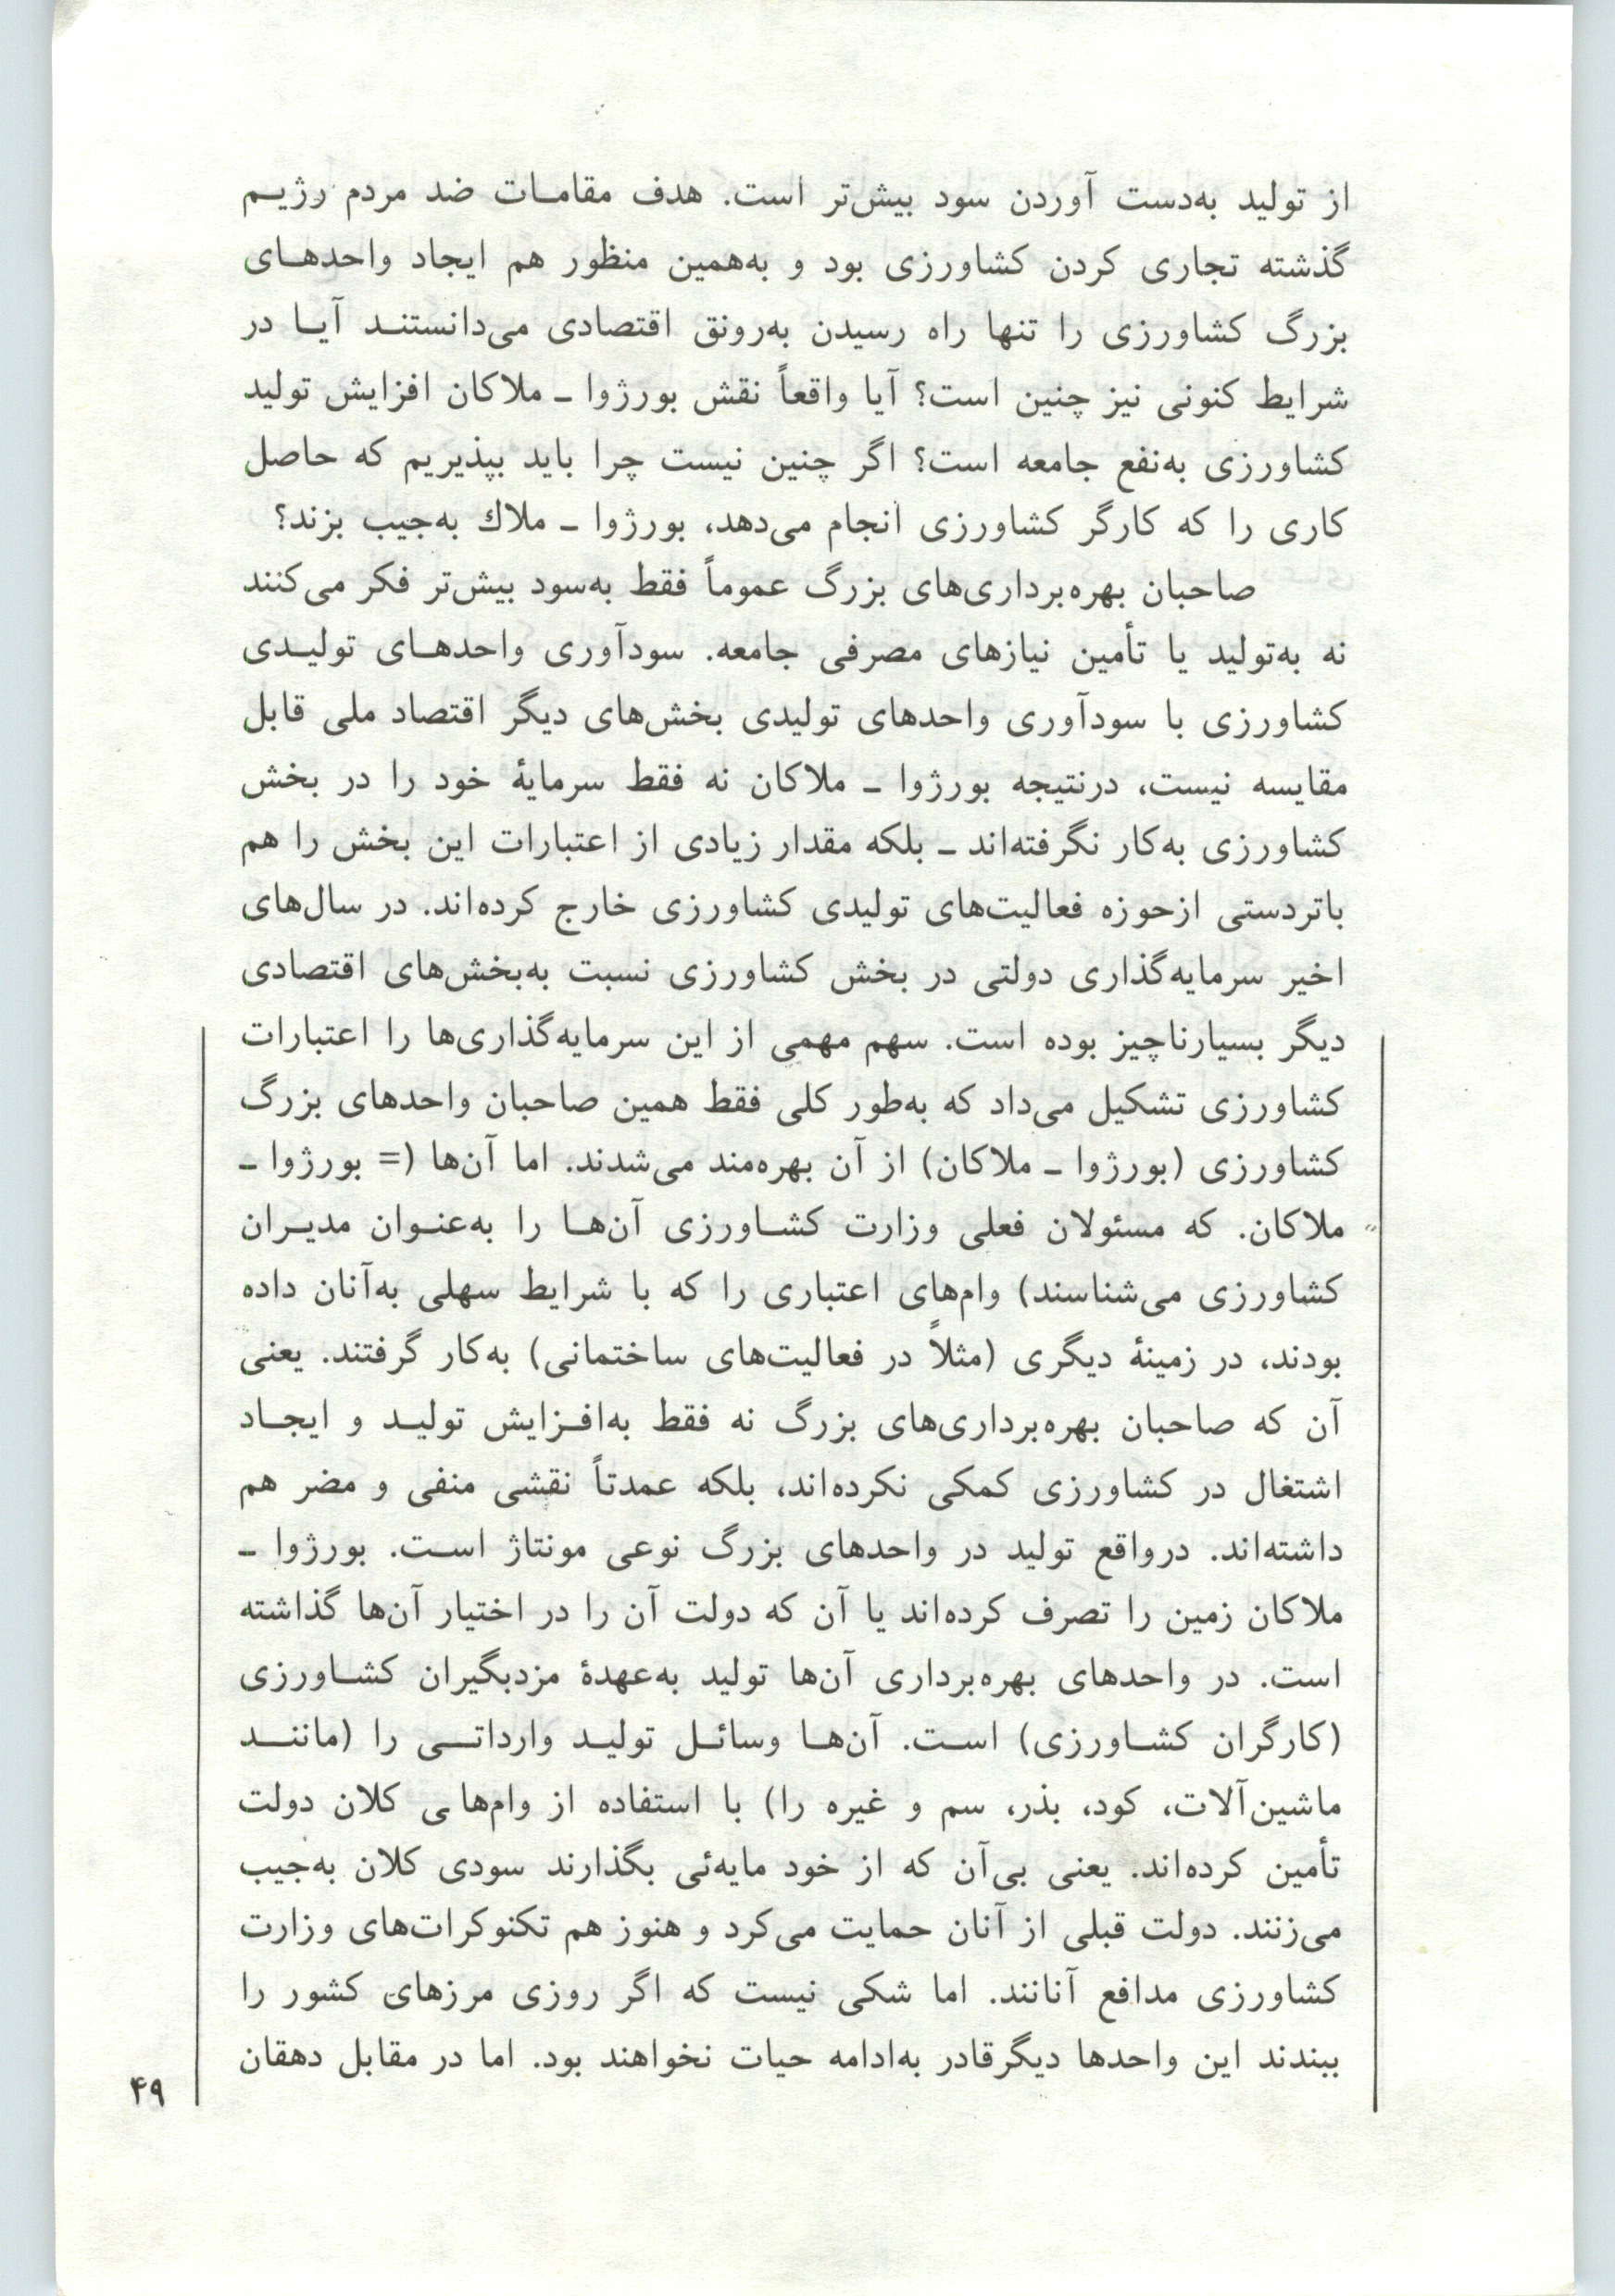 از تولید به‌دست آوردن سود بیش‌تر است. هدف مقامات ضد مردم رژیم
گذشته تجاری کردن کشاورزی بود و به‌همین منظور هم ایجاد واحدهای
بزرگ کشاورزی را تنها راه رسیدن به‌رونق اقتصادی می‌دانستند آیا در
شرایط کنونی نیز چنین است؟ آیا واقعاً نقش بورژوا ـ ملاکان افزایش تولید
کشاورزی به‌نفع جامعه است؟ اگر چنین نیست چرا باید بپذیریم که حاصل
کاری را که کارگر کشاورزی انجام می‌دهد، بورژوا ـ ملاك به‌جیب بزند؟
صاحبان بهره‌برداری‌های بزرگ عموماً فقط به‌سود بیش‌تر فکر می‌کنند
نه به‌تولید یا تأمین نیازهای مصرفی جامعه. سودآوری واحدهای تولیدی
کشاورزی با سودآوری واحدهای تولیدی بخش‌های دیگر اقتصاد ملی قابل
مقایسه نیست، درنتیجه بورژوا ـ ملاکان نه فقط سرمایهٔ خود را در بخش
کشاورزی به‌کار نگرفته‌اند ـ بلکه مقدار زیادی از اعتبارات این بخش را هم
باتردستی ازحوزه فعالیت‌های تولیدی کشاورزی خارج کرده‌اند. در سال‌های
اخیر سرمایه‌گذاری دولتی در بخش کشاورزی نسبت به‌بخش‌های اقتصادی
دیگر بسیارناچیز بوده است. سهم مهمی از این سرمایه‌گذاری‌ها را اعتبارات
کشاورزی تشکیل می‌داد که به‌طور کلی فقط همین صاحبان واحدهای بزرگ
کشاورزی (بورژوا ـ ملاکان) از آن بهره‌مند می‌شدند. اما آن‌ها (= بورژوا ـ
ملاکان. که مسئولان فعلی وزارت کشاورزی آن‌ها را به‌عنوان مدیران
کشاورزی می‌شناسند) وام‌های اعتباری را که با شرایط سهلی به‌آنان داده
بودند، در زمینهٔ دیگری (مثلاً در فعالیت‌های ساختمانی) به‌کار گرفتند. یعنی
آن که صاحبان بهره‌برداری‌های بزرگ نه فقط به‌افزایش تولید و ایجاد
اشتغال در کشاورزی کمکی نکرده‌اند، بلکه عمدتاً نقشی منفی و مضر هم
داشته‌اند. درواقع تولید در واحدهای بزرگ نوعی مونتاژ است. بورژوا ـ
ملاکان زمین را تصرف کرده‌اند یا آن که دولت آن را در اختیار آن‌ها گذاشته
است. در واحدهای بهره‌برداری آن‌ها تولید به‌عهدهٔ مزدبگیران کشاورزی
(کارگران کشاورزی) است. آن‌ها وسائل تولید وارداتی را (مانند
ماشین‌آلات، کود، بذر، سم و غیره را) با استفاده از وام‌های کلان دولت
تأمین کرده‌اند. یعنی بی‌آن که از خود مایه‌ئی بگذارند سودی کلان به‌جیب
می‌زنند. دولت قبلی از آنان حمایت می‌کرد و هنوز هم تکنوکرات‌های وزارت
کشاورزی مدافع آنانند. اما شکی نیست که اگر روزی مرزهای کشور را
ببندند این واحدها دیگرقادر به‌ادامه حیات نخواهند بود. اما در مقابل دهقان
۴۹